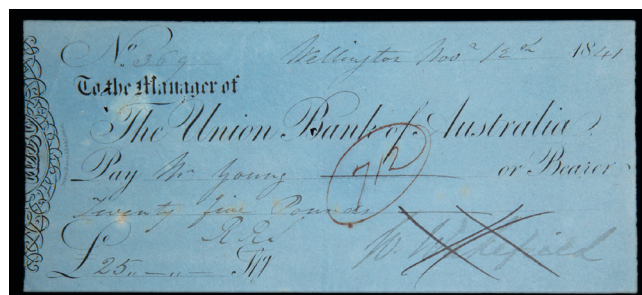 No. 369 Wellington Novr 12th 1841
To the Manager of
The Union Bank of Australia
Pay Mr Young or Bearer
Twenty five Pounds
£25,, — ,, —
W. Wakefield